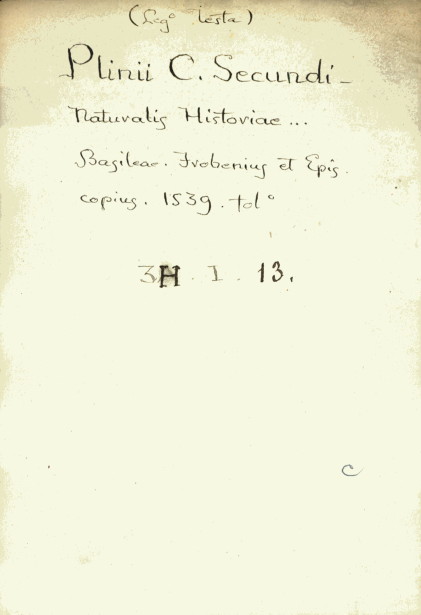 (Leg° Testa)
Plinii C. Secundi -
Naturalis Historiae ...
Basileae. Frobenius et Epis.
copius. 1539. fol°
3H. I. 13.
C